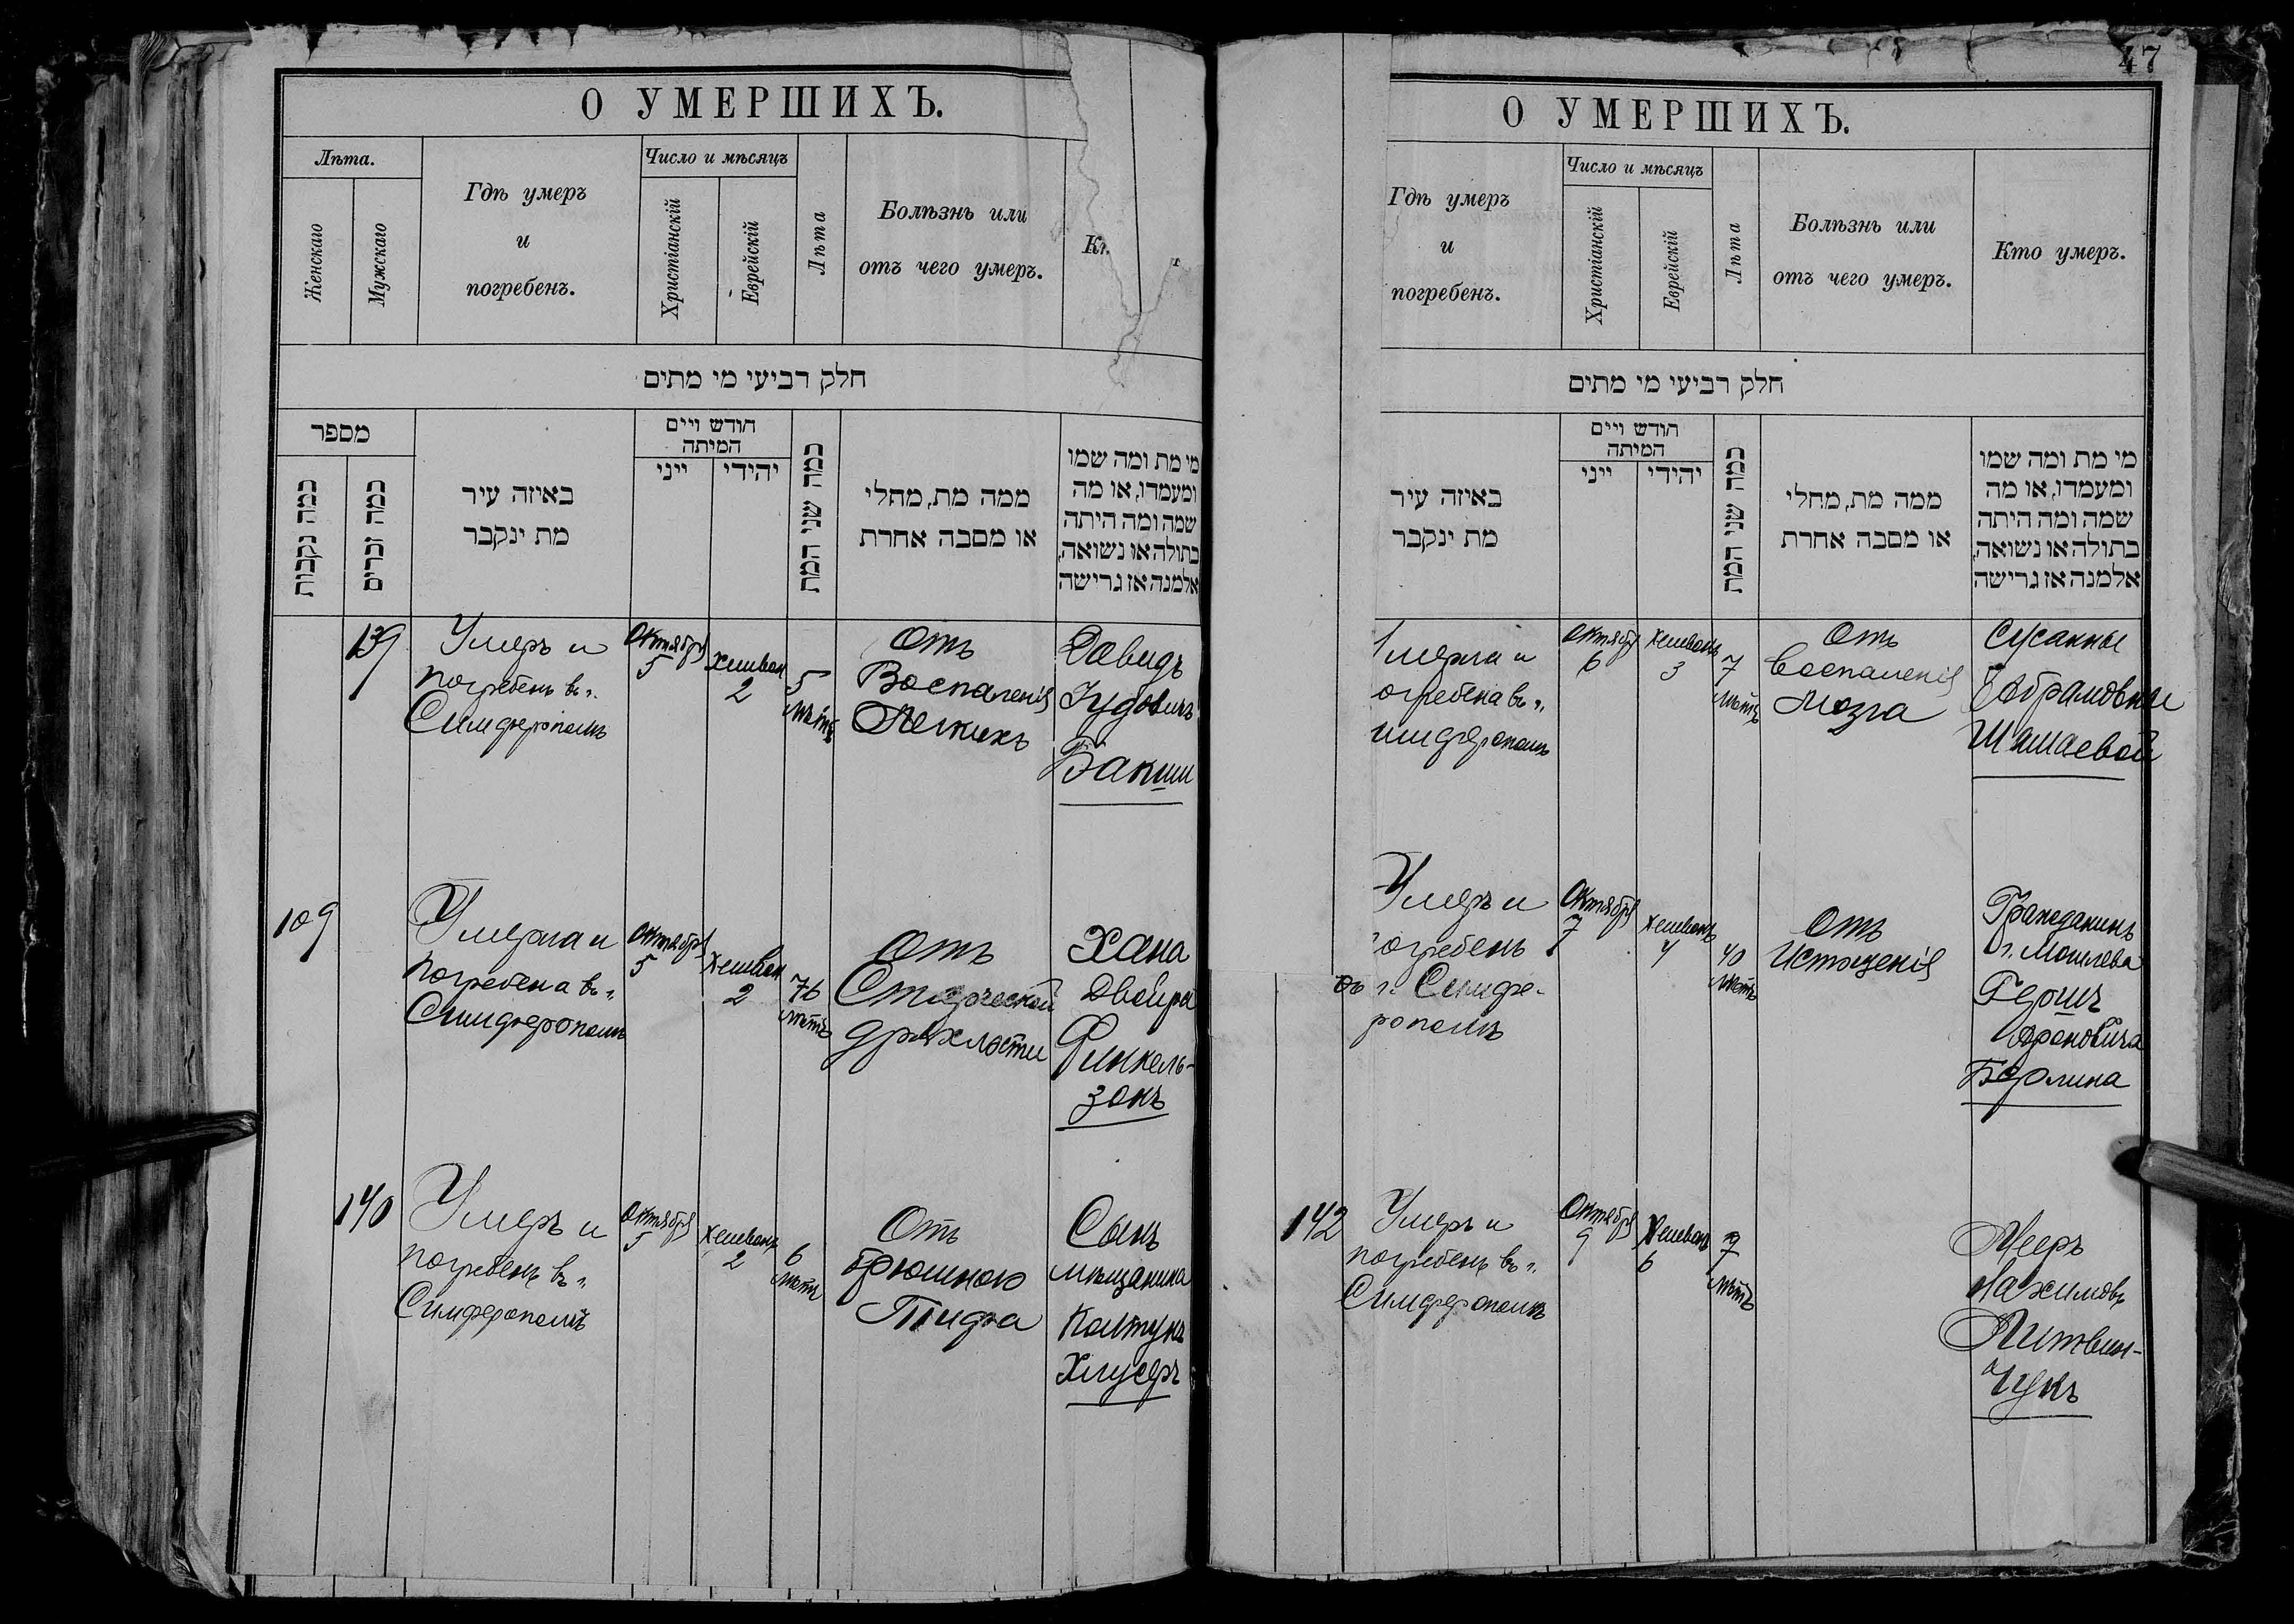 О УМЕРШИХЪ.
Лѣта.
Женскаго
Мужскаго
Гдѣ умеръ
и
погребенъ.
Число и мѣсяцъ
Христіанскій
Еврейскій
Лѣта
Болѣзнь или
отъ чего умеръ.
חלק רביעי מי מתים
מספר
כמה נקבות
כמה זכרים
באיזה עיר
מת ינקבר
חודש ויים
המיתה
ייני
יהידי
כמה שני המת
ממה מת, מחלי
או מסבה אחרת
מי מת ומה שמו
ומעמדו, או מה
שמה ומה היתה
בתולה או נשואה,
אלמנה אז גרישה
139
Умеръ и
погребенъ въ г.
Симферополѣ
Октября
5
Хешван
2
5
лѣтъ
Отъ
Воспаленія
Легкихъ
Давидъ
Іудовичъ
Бакши
109
Умерла и
погребена въ г.
Симферополѣ
Октября
5
Хешван
2
76
лѣтъ
Отъ
Старческой
дряхлости
Хана
Двойра
Финкель-
зонъ
140
Умеръ и
погребенъ въ г.
Симферополѣ
Октября
5
Хешванъ
2
6
лѣтъ
Отъ
брюшного
Тифа
Сынъ
мѣщанина
Колтунъ
Хлусеръ
47
О УМЕРШИХЪ.
Гдѣ умеръ
и
погребенъ.
Число и мѣсяцъ
Христіанскій
Еврейскій
Лѣта
Болѣзнь или
отъ чего умеръ.
Кто умеръ.
חלק רביעי מי מתים
באיזה עיר
מת ינקבר
חודש ויים
המיתה
ייני
יהידי
כמה שני המת
ממה מת, מחלי
או מסבה אחרת
מי מת ומה שמו
ומעמדו, או מה
שמה ומה היתה
בתולה או נשואה,
אלמנה אז גרישה
мерла и
огребена въ г.
имферополѣ
Октября
6
Хешванъ
3
7
лѣтъ
Отъ
воспаленія
Мозга
Сусанны
Абрамовны
Шамаевой
Умеръ и
огребенъ
въ г. Симфе-
рополѣ
Октября
7
Хешванъ
4
40
лѣтъ
Отъ
Истощенія
Гражданинъ
г. Могилева
Гершъ
Ароновича
Берлина
142
Умеръ и
погребенъ въ г.
Симферополѣ
Октября
9
Хешванъ
6
7
лѣтъ
Мееръ
Нахимовъ
Литвин-
чукъ